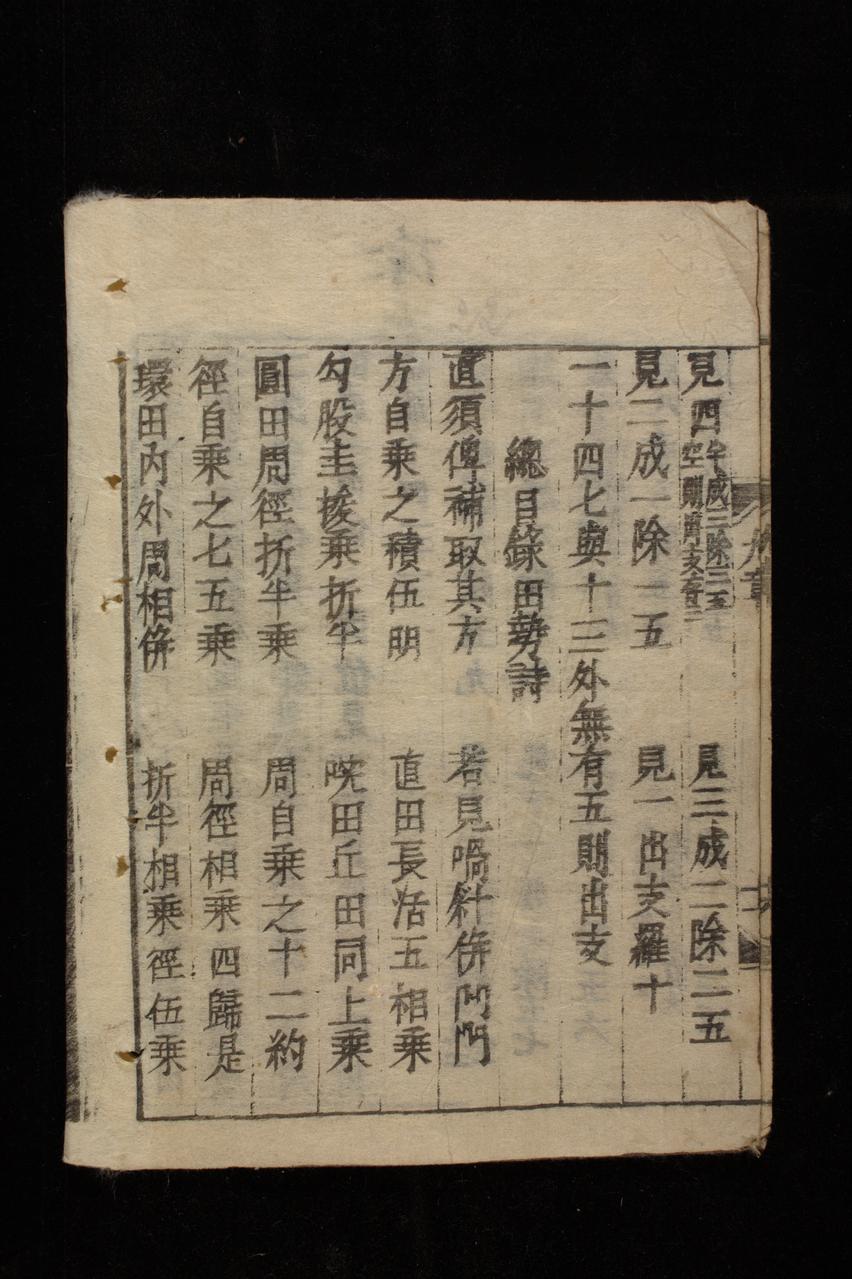 見四 成三除三五 見三成二除二五
見二成一除一五 見一出支羅十
一十四七與十三外無有五則出支
總目錄田勢詩
直須俾補取其方 若見喎斜併
方自乘之積伍明 直田長活五相乘
勾股圭 乘折半 田丘田同上乘
圓田周徑折半乘 周自乘之十二約
徑自乘之七五乘 周徑相乘四歸是
環田內外周相併 折半相乘徑伍乘
九章